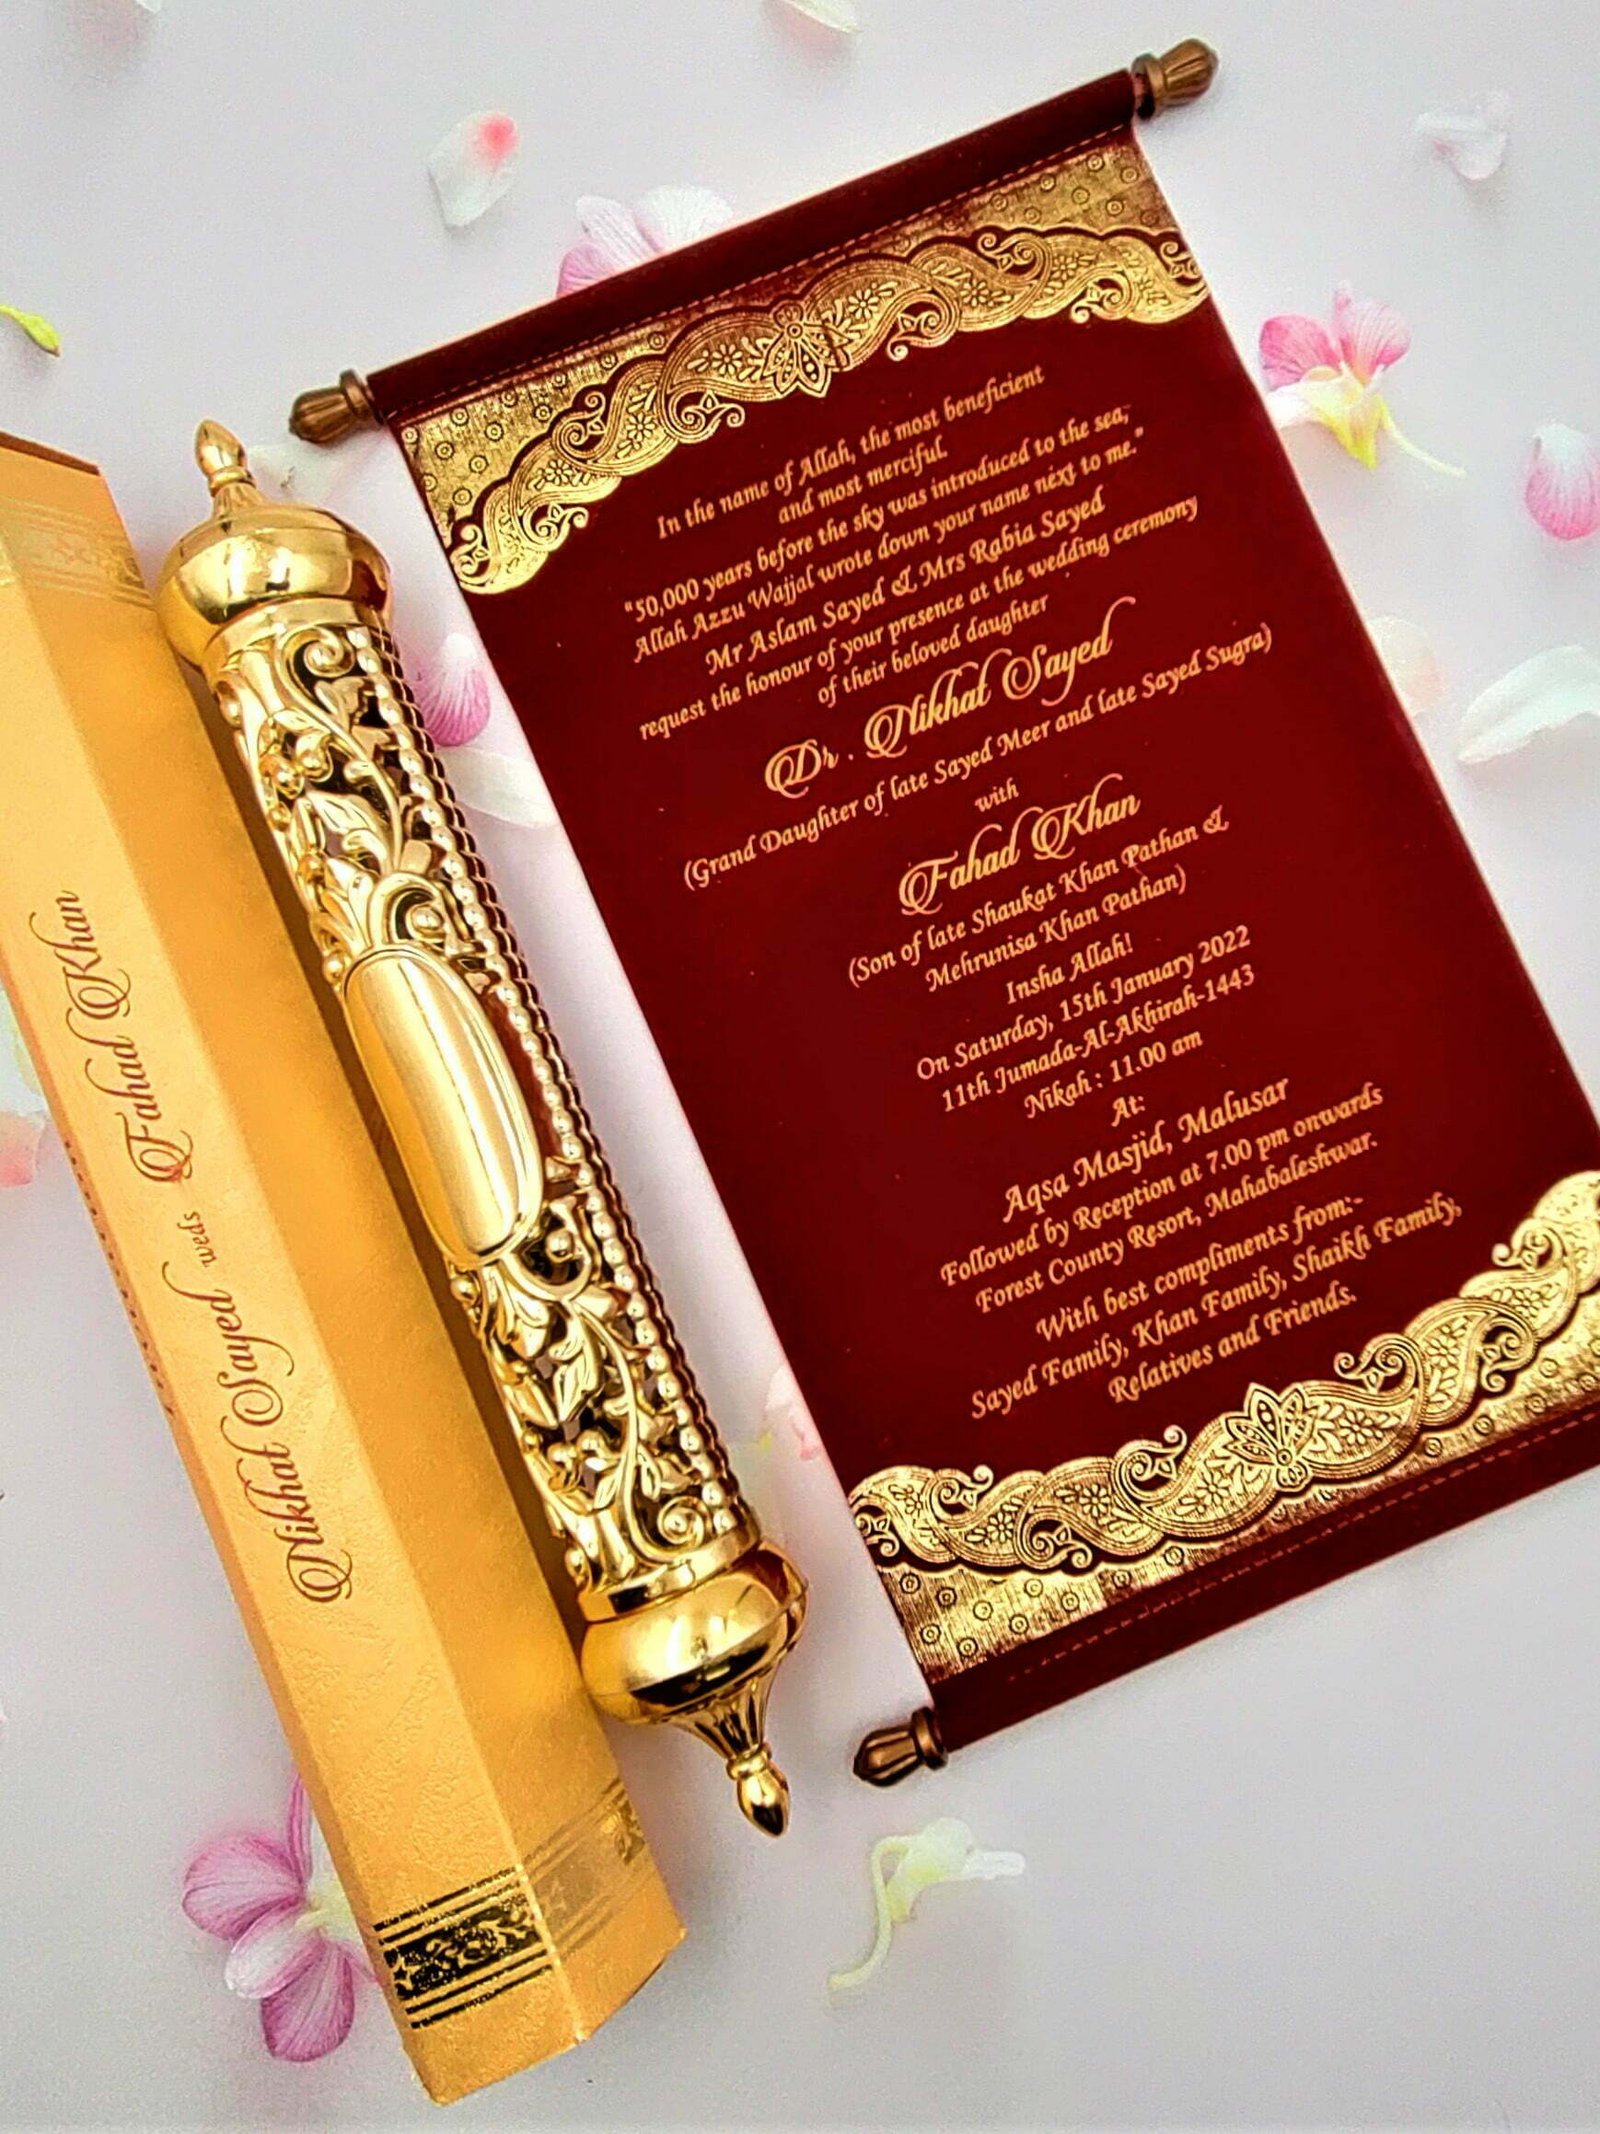 In the name of Allah, the most beneficient
and most merciful.
"50,000 years before the sky was introduced to the sea,
Allah Azzu Wajjal wrote down your name next to me."
Mr Aslam Sayed & Mrs Rabia Sayed
request the honour of your presence at the wedding ceremony
of their beloved daughter
Dr. Nikhat Sayed
(Grand Daughter of late Sayed Meer and late Sayed Sugra)
with
Fahad Khan
(Son of late Shaukat Khan Pathan &
Mehrunisa Khan Pathan)
Insha Allah!
On Saturday, 15th January 2022
11th Jumada-Al-Akhirah-1443
Nikah : 11.00 am
At:
Aqsa Masjid, Malusar
Followed by Reception at 7.00 pm onwards
Forest County Resort, Mahabaleshwar.
With best compliments from:-
Sayed Family, Khan Family, Shaikh Family,
Relatives and Friends.
Nikhat Sayed weds Fahad Khan